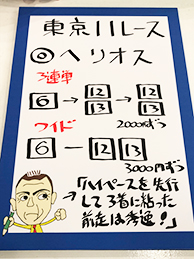 東京11レース
◎ヘリオス
3連単
6→12 13→12 13
2000円ずつ
ワイド
6－12 13
3000円ずつ
「ハイペースを先行
して3着に粘った
前走は秀逸！」